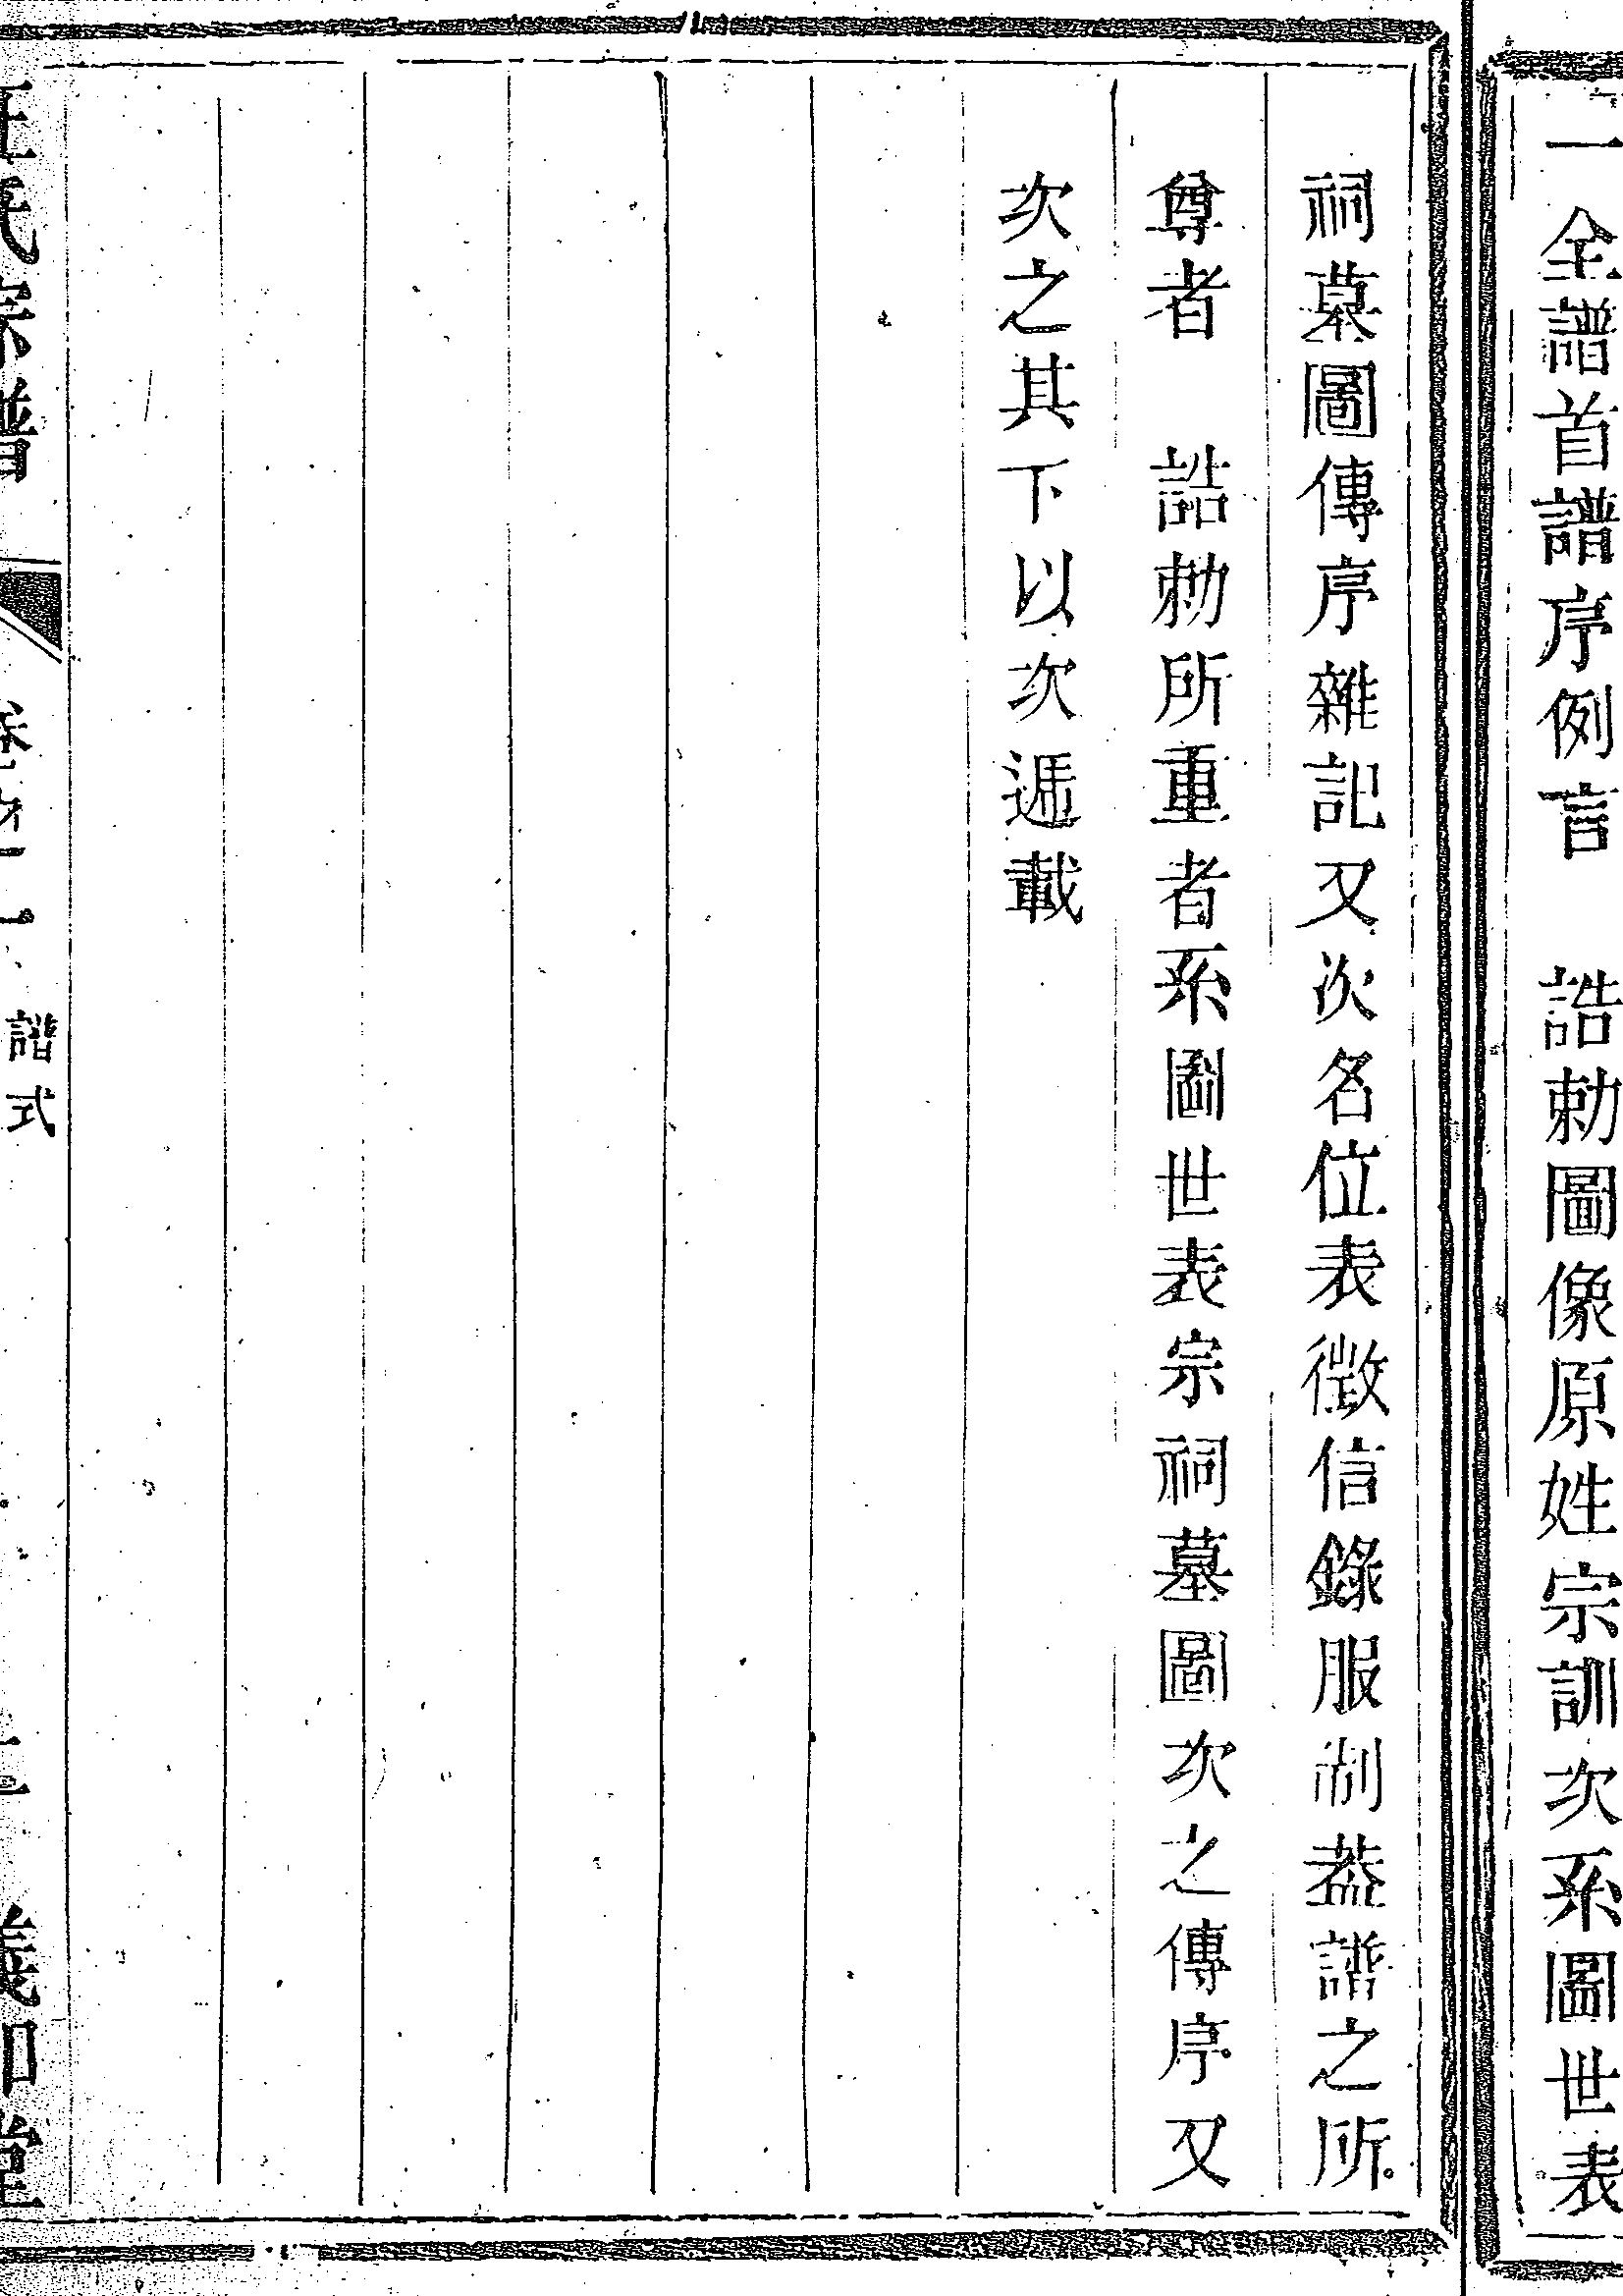 一全譜首譜序例言　誥勅圖像原姓宗訓次系圖世表
祠墓圖傳序雜記又次名位表徵信錄服制葢譜之所
尊者　誥勅所重者系圖世表宗祠墓圖次之傳序又
次之其下以次遞載
氏宗譜
卷之一　譜式
義和堂